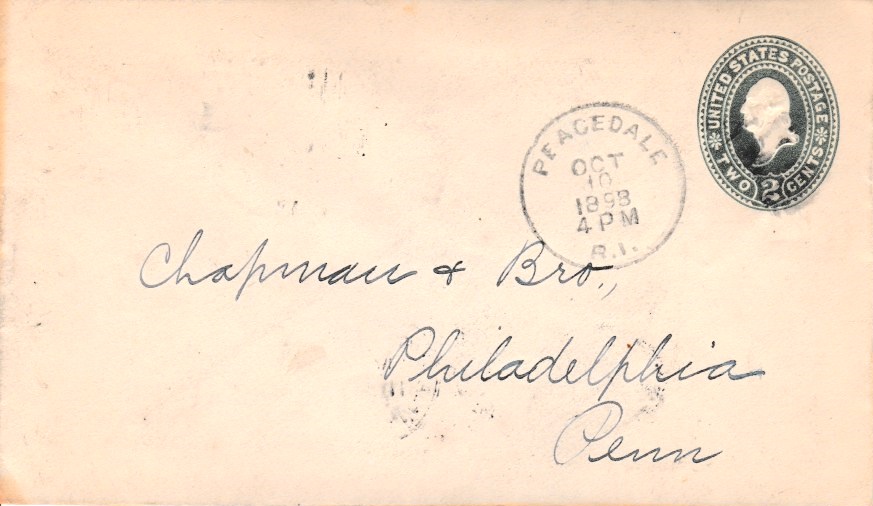 UNITED STATES POSTAGE
TWO 2 CENTS
PEACEDALE
OCT
10
1893
4 PM
R.I.
Chapman & Bro.,
Philadelphia
Penn